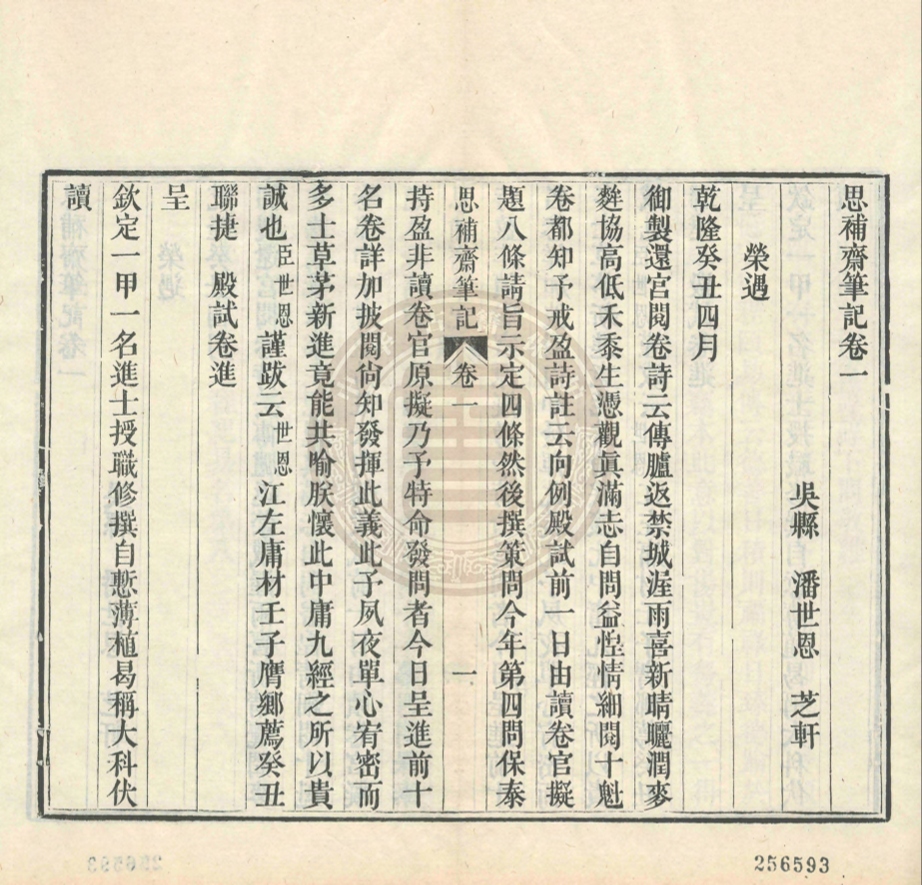 思補齋筆記卷一
吳縣 潘世恩 芝軒
榮遇
乾隆癸丑四月
御製還宮閱卷詩云傳臚返禁城渥雨喜新晴曬潤麥
麰協高低禾黍生憑觀眞滿志自問益惶情細閱十魁
卷都知予戒盈詩註云向例殿試前一日由讀卷官擬
題八條請旨示定四條然後撰策問今年第四問保泰
思補齋筆記 卷一 一
持盈非讀卷官原擬乃予特命發問者今日呈進前十
名卷詳加披閱尙知發揮此義此予夙夜單心宥密而
多士草茅新進竟能共喻朕懷此中庸九經之所以貴
誠也臣世恩謹跋云世恩江左庸材壬子膺鄉薦癸丑
聯捷 殿試卷進
呈
欽定一甲一名進士授職修撰自慙薄植曷稱大科伏
讀
256593